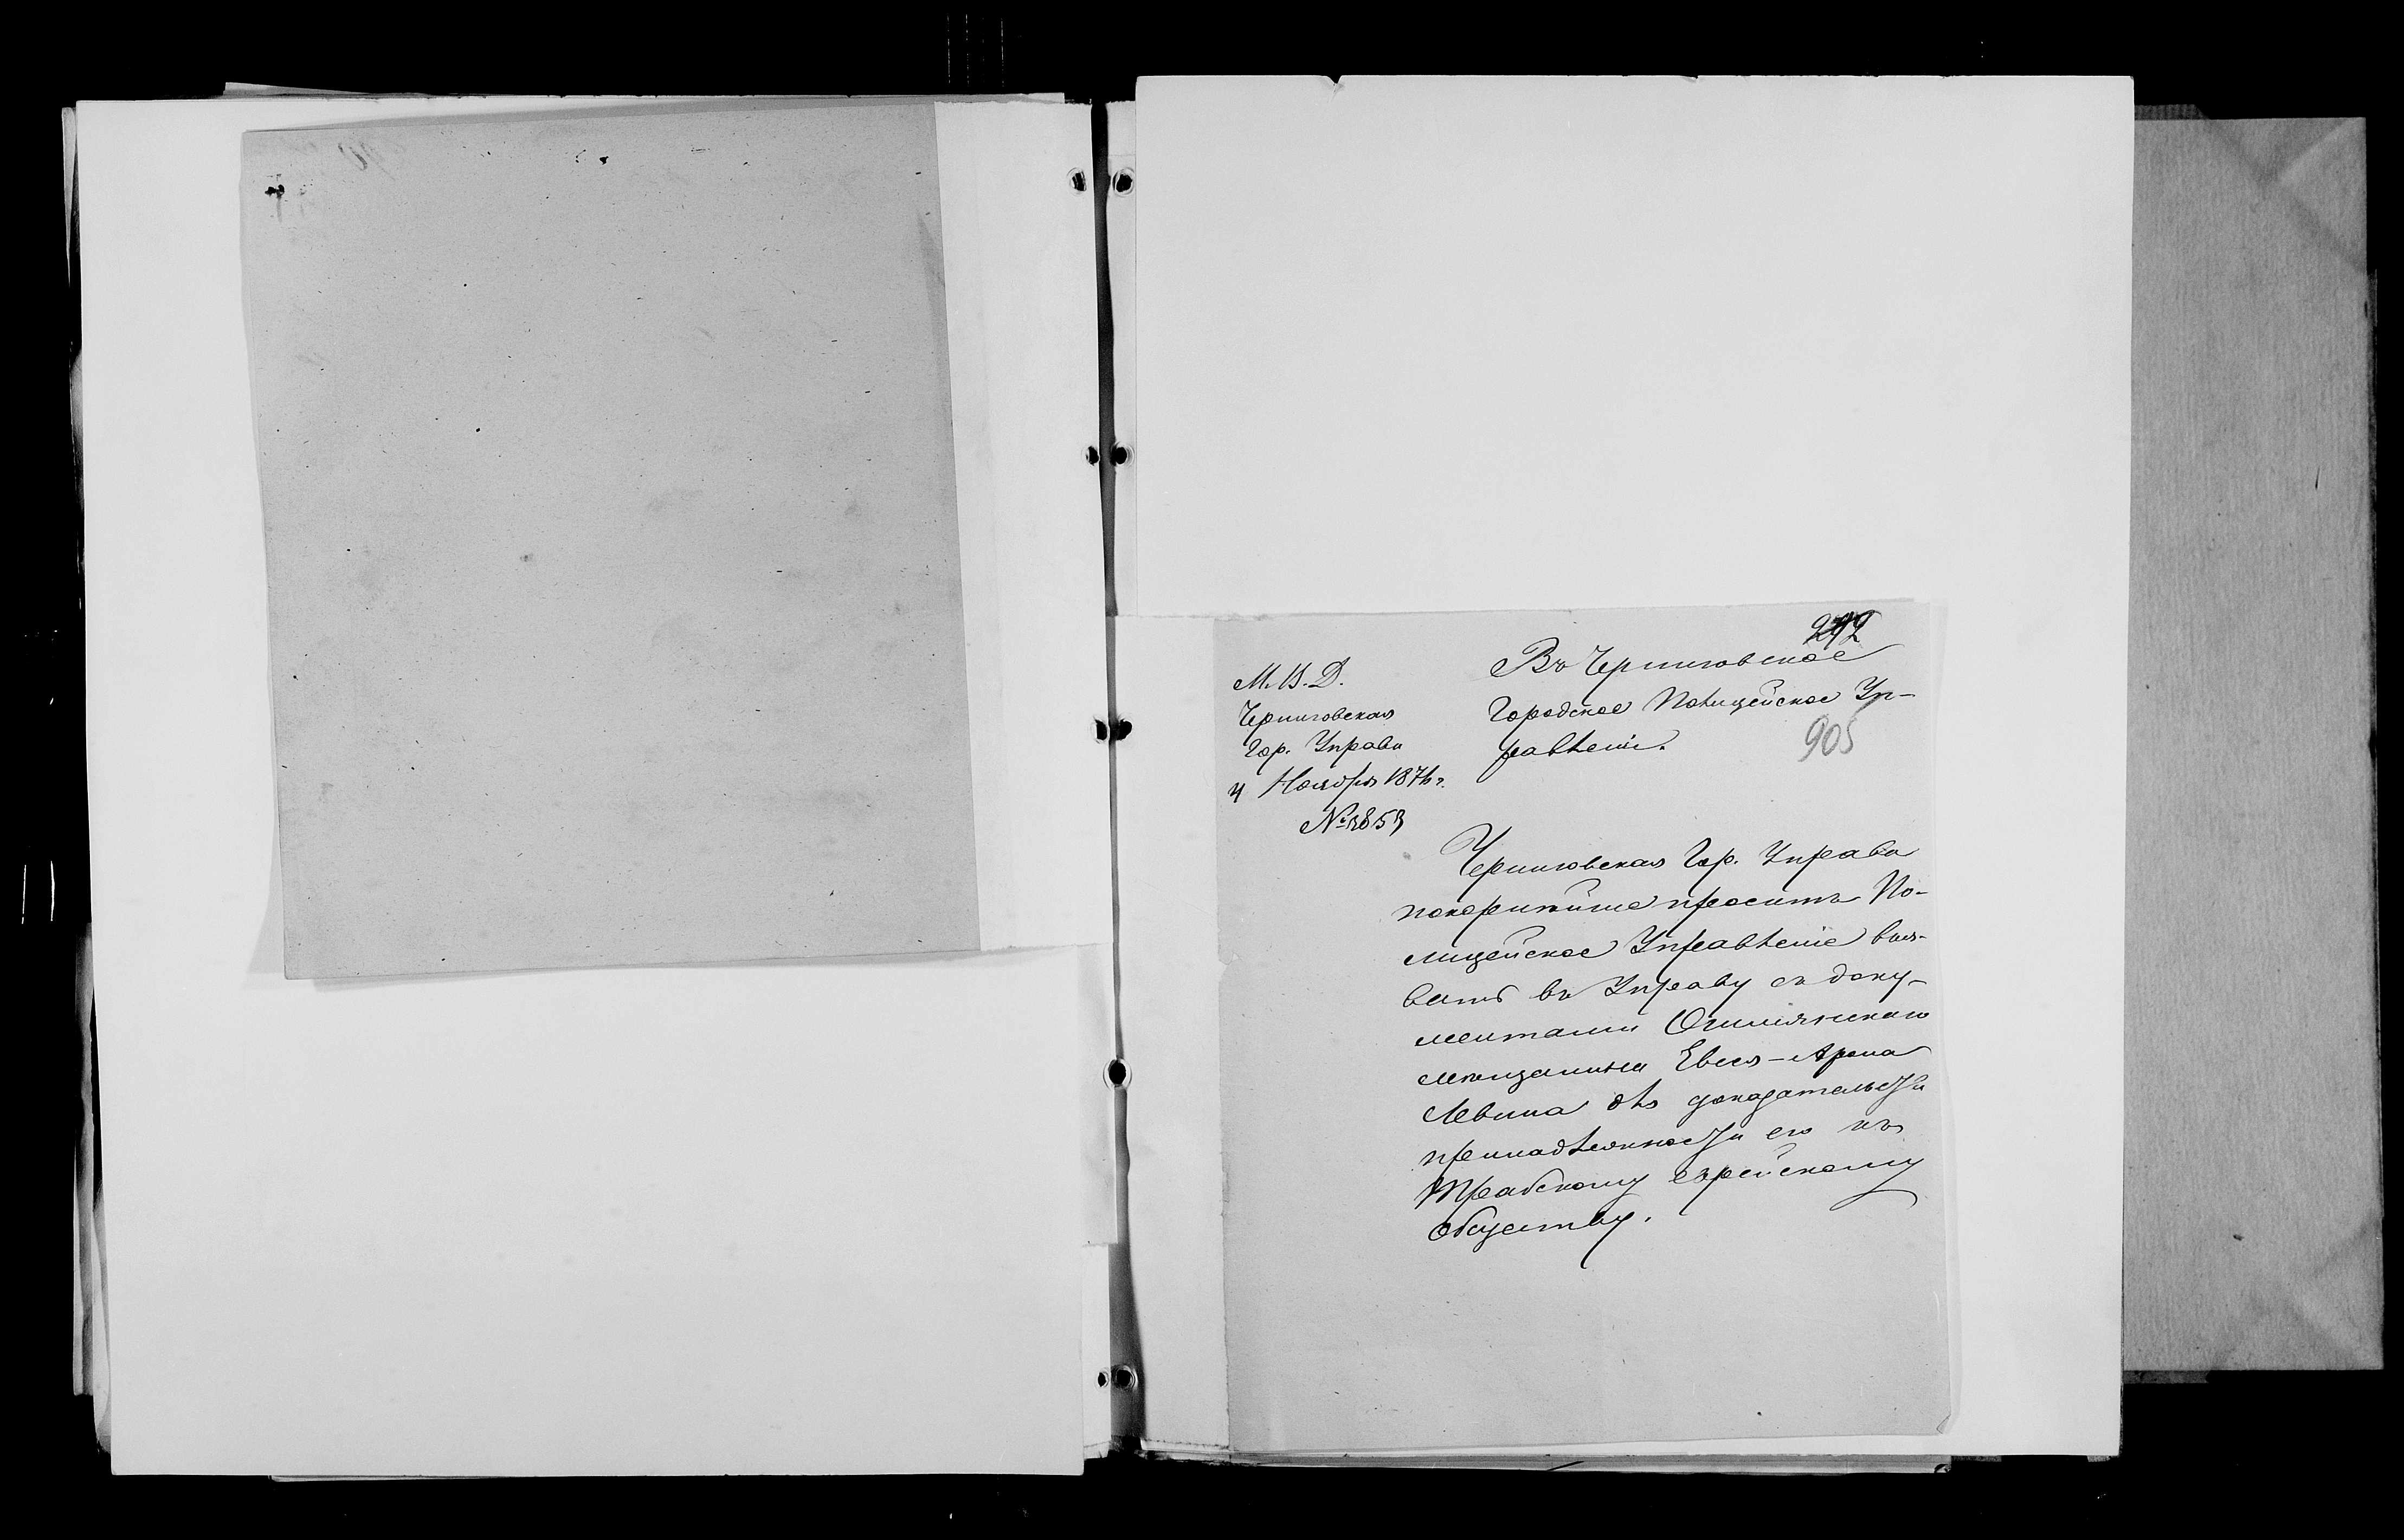 292
М. В. Д.
Черниговская
Гор. Управа
4 Ноября 1876 г.
№ 3853
Въ Черниговское
Городское Полицейское Уп-
равленіе.
905
Черниговская Гор. Управа
покорнѣйше проситъ По-
лицейское Управленіе выз-
вать въ Управу съ доку-
ментами Ошмянскаго
мѣщанина Евеля-Арона
Левина для доказательства
принадлежности его къ
Трабскому еврейскому
обществу.